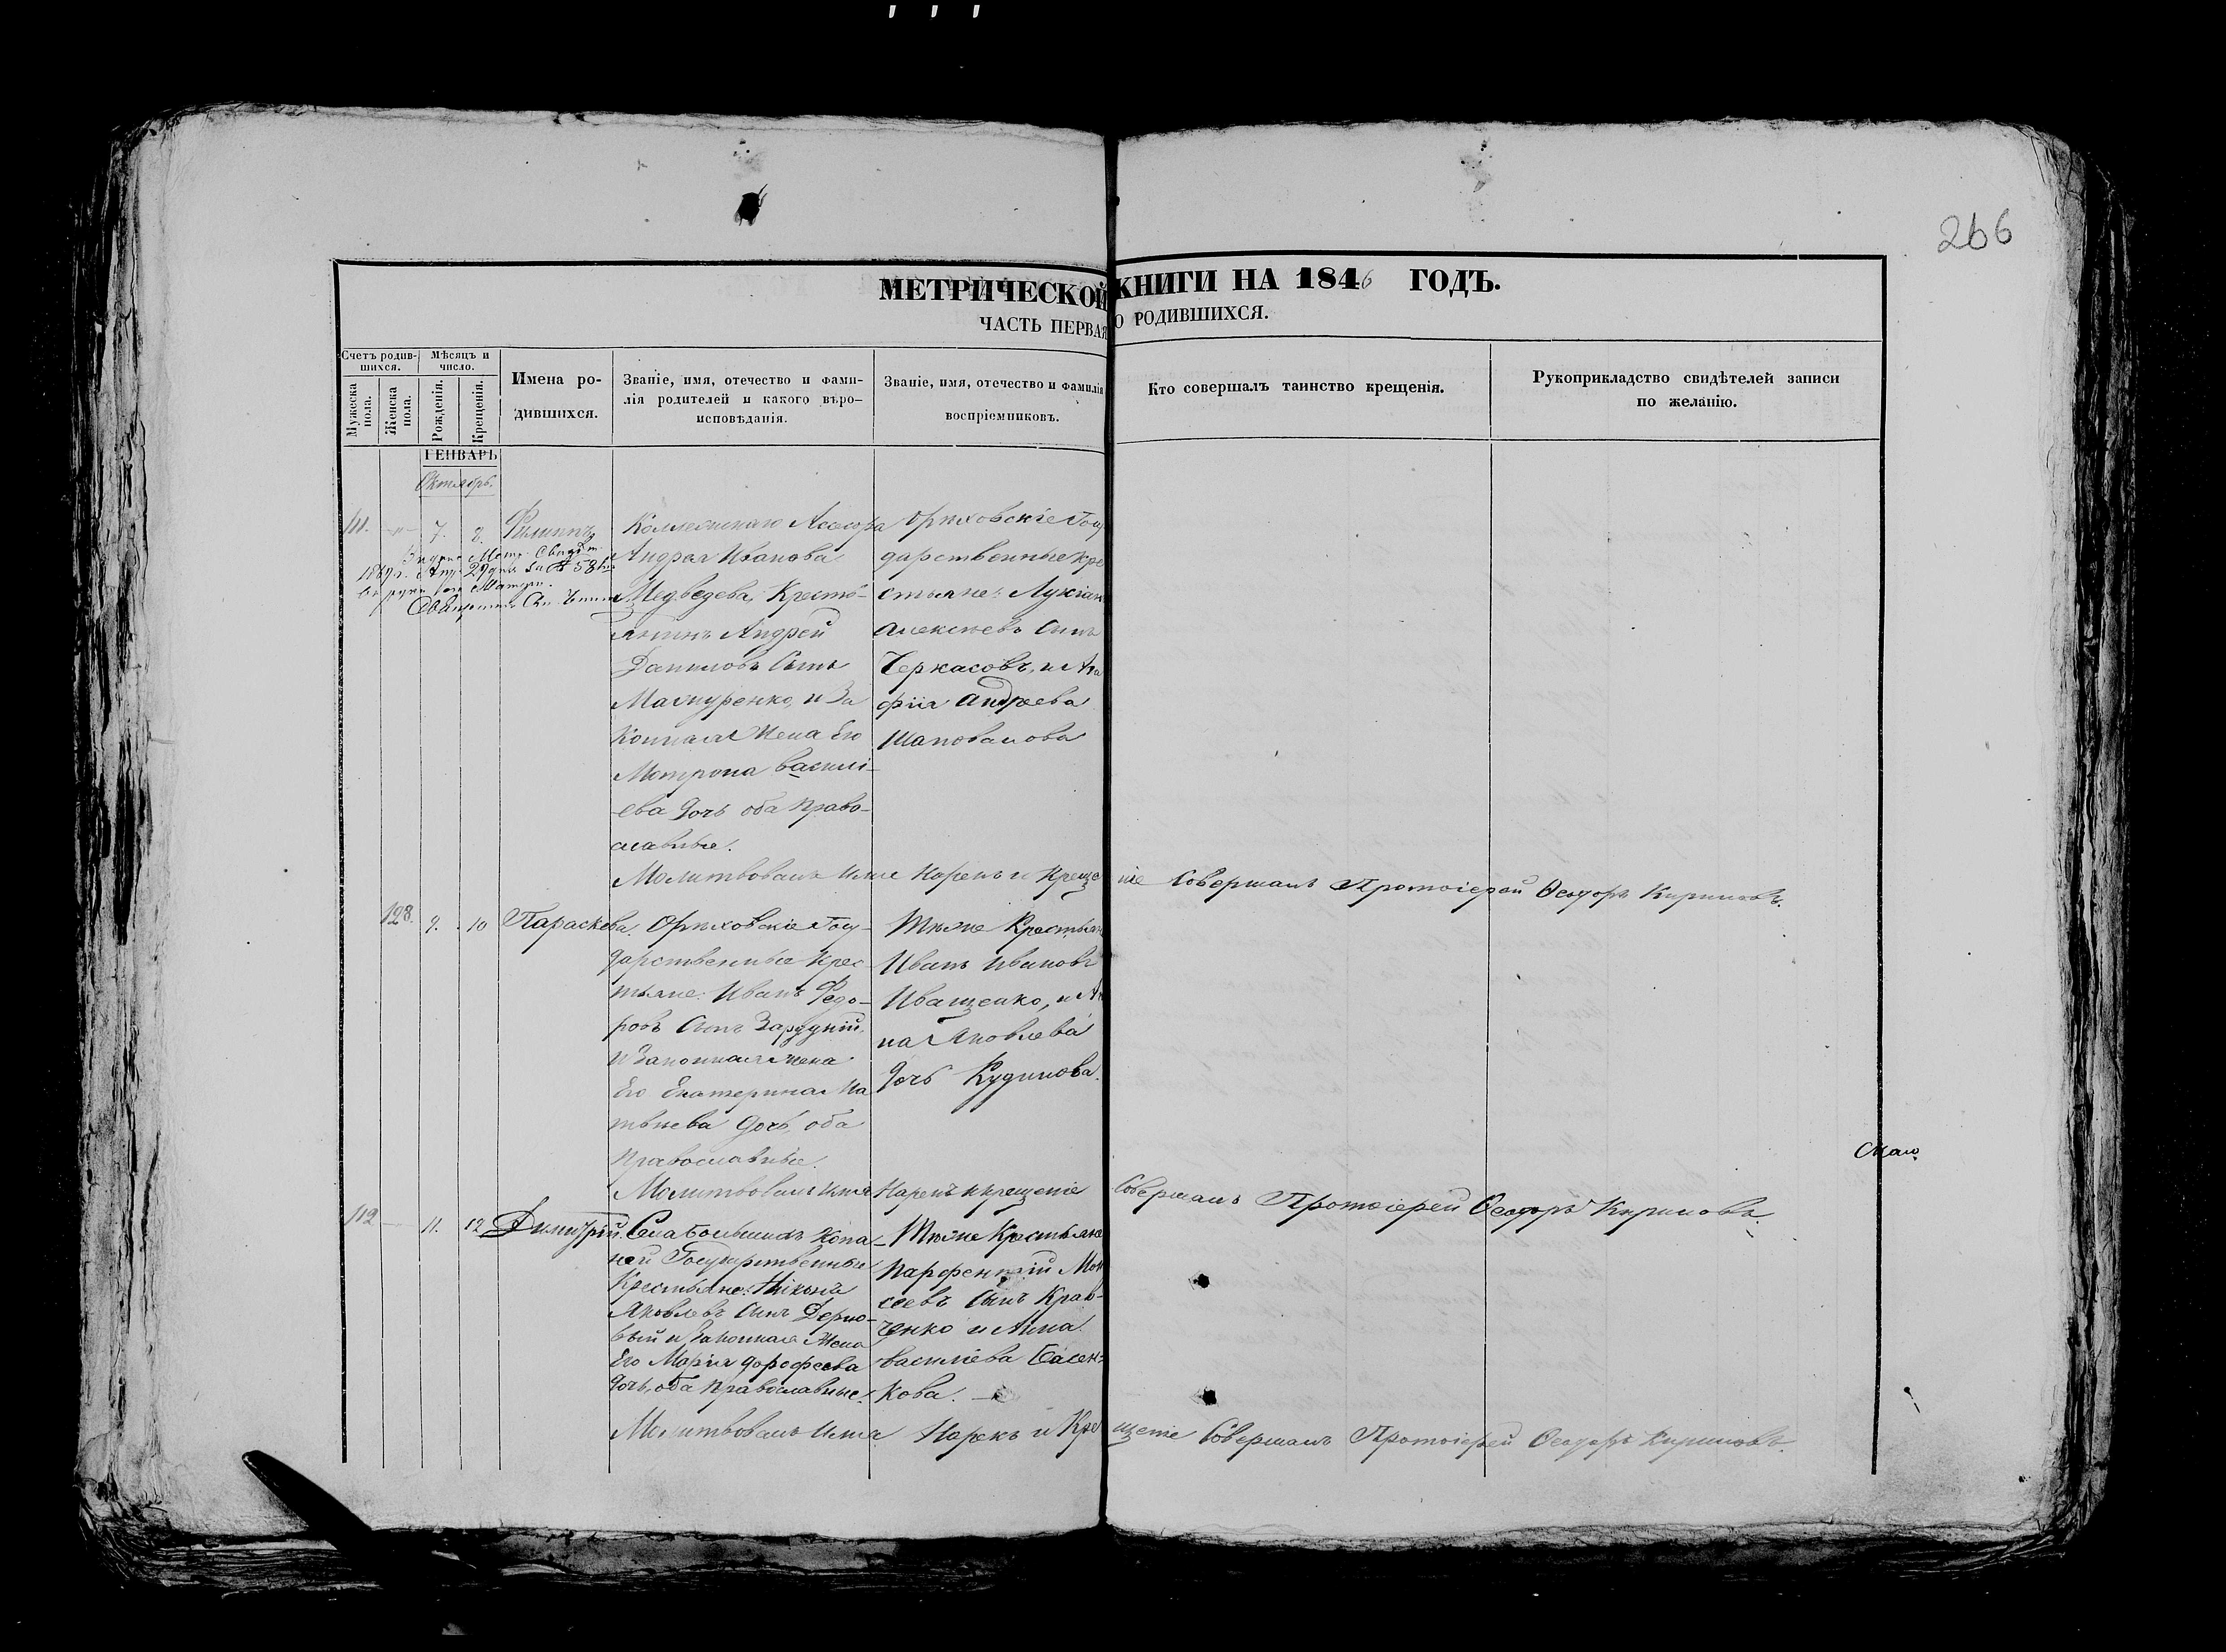 266
МЕТРИЧЕСКОЙ КНИГИ НА 1846 ГОДЪ.
ЧАСТЬ ПЕРВАЯ О РОДИВШИХСЯ.
Счетъ родив-
шихся.
Мужеска
пола.
Женска
пола.
Мѣсяцъ и
число.
Рожденія.
Крещенія.
Имена ро-
дившихся.
Званіе, имя, отечество и фами-
лія родителей и какого вѣро-
исповѣданія.
Званіе, имя, отечество и фамилія
воспріемниковъ.
Кто совершалъ таинство крещенія.
Рукоприкладство свидѣтелей записи
по желанію.
ГЕНВАРЬ
Октябрь.
111. 7. 8. Филиппъ
Коллежскаго Асесора
Андрея Иванова
Медведева, Кресть-
янинъ Андрей
Даниловъ Сынъ
и За
конная Жена Его
Мотрона Василі-
ева Дочь оба Право-
славные.
Орѣховскіе Госу
дарственные кре
стьяне: Лукіан
Алексѣевъ Сынъ
Черкасовъ, и Ага
фія Андреева
Шаповалова
Молитвовалъ Имя Нарекъ и Креще
ніе Совершалъ Протоіерей Ѳеодоръ Кириловъ.
128. 9. 10 Параскева.
Орѣховскіе Госу-
дарственные Крес
тьяне: Иванъ Федо-
ровъ Сынъ Зарудній,
и Законная жена
Его Екатерина Ма
твѣева Дочь, оба
Православные.
Тѣже Крестьян
Иванъ Ивановъ
Иващенко, и Ан
на Яковлева
Дочь Кудинова.
Молитвовалъ имя Нарекъ и крещеніе
Совершалъ Протоіерей Ѳеодоръ Кириловъ.
112 11. 12 Димитрій.
Села Большихъ Копа
ней Государственные
Крестьяне:
Яковлевъ Сынъ
и Законная Жена
Его Марія Дорофеева
Дочь, оба Православные.
Тѣже Крестьяне
Парфентій Мои
сеевъ Сынъ Крав-
ченко и Анна
Василіева
кова.
Молитвовалъ Имя Нарекъ и Кре
щеніе Совершалъ Протоіерей Ѳеодоръ Кириловъ.